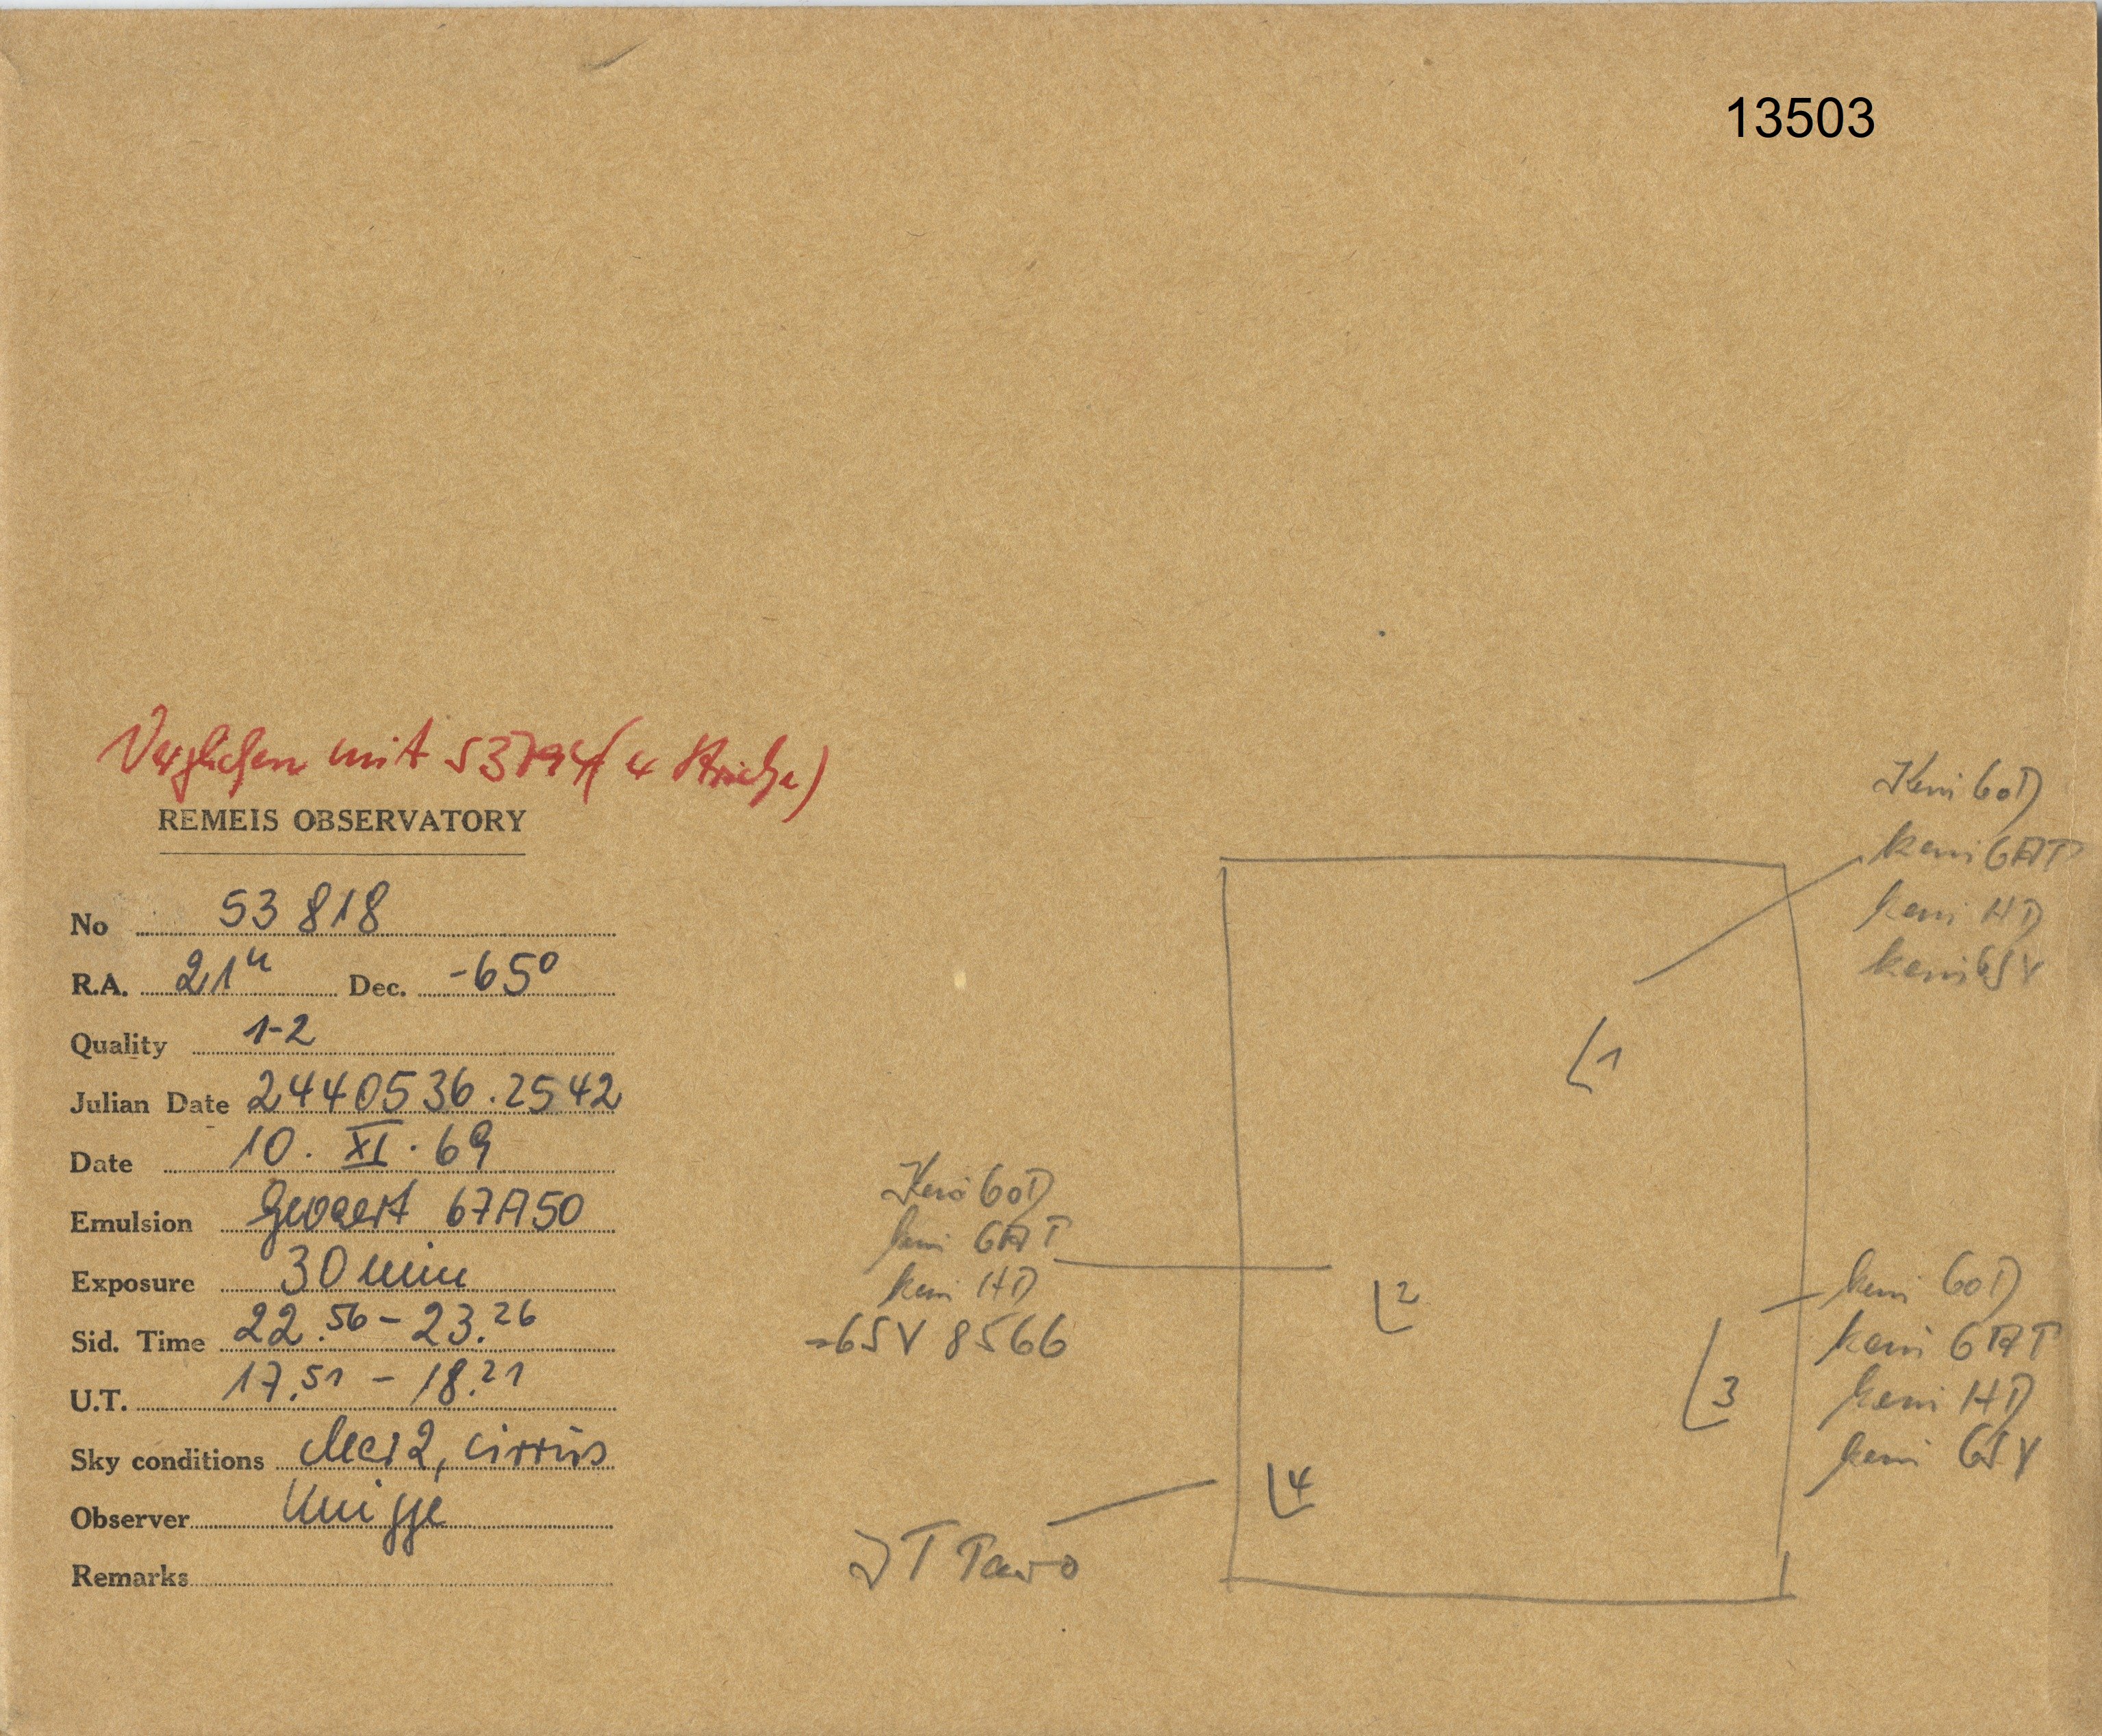 13503
Verglichen mit 53794 (4 Striche)
REMEIS OBSERVATORY
No 53818
R.A. 21h Dec. -65°
Quality 1-2
Julian Date 2440536.2542
Date 10. XI. 69
Emulsion Gevaert 67A50
Exposure 30 min
Sid. Time 22.56 - 23.26
U.T. 17.51 - 18.21
Sky conditions clear 2, cirrus
Observer Knigge
Remarks
Kein GoD
kein GAT
kein HD
kein GSV
1
Kein GoD
kein GAT
kein HD
=GSV 8566
2
kein GoD
kein GAT
kein HD
kein GSV
3
4